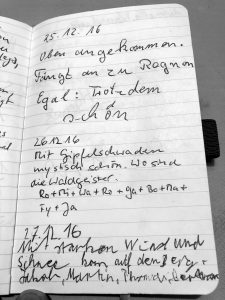 25.12.16
Oben angekommen.
Fängt an zu Regnen
Egal: Trotzdem
schön
26.12.16
Mit Gipfelschwaden
mystisch schön. Wo sind
die Waldgeister.
Ro + Mi + Wa + Ro + Ga + Bo + Ma +
Fy + Ja
27.12.16
Mit starkem Wind und
Schnee kam auf den Berg:
Martin, Thomas,